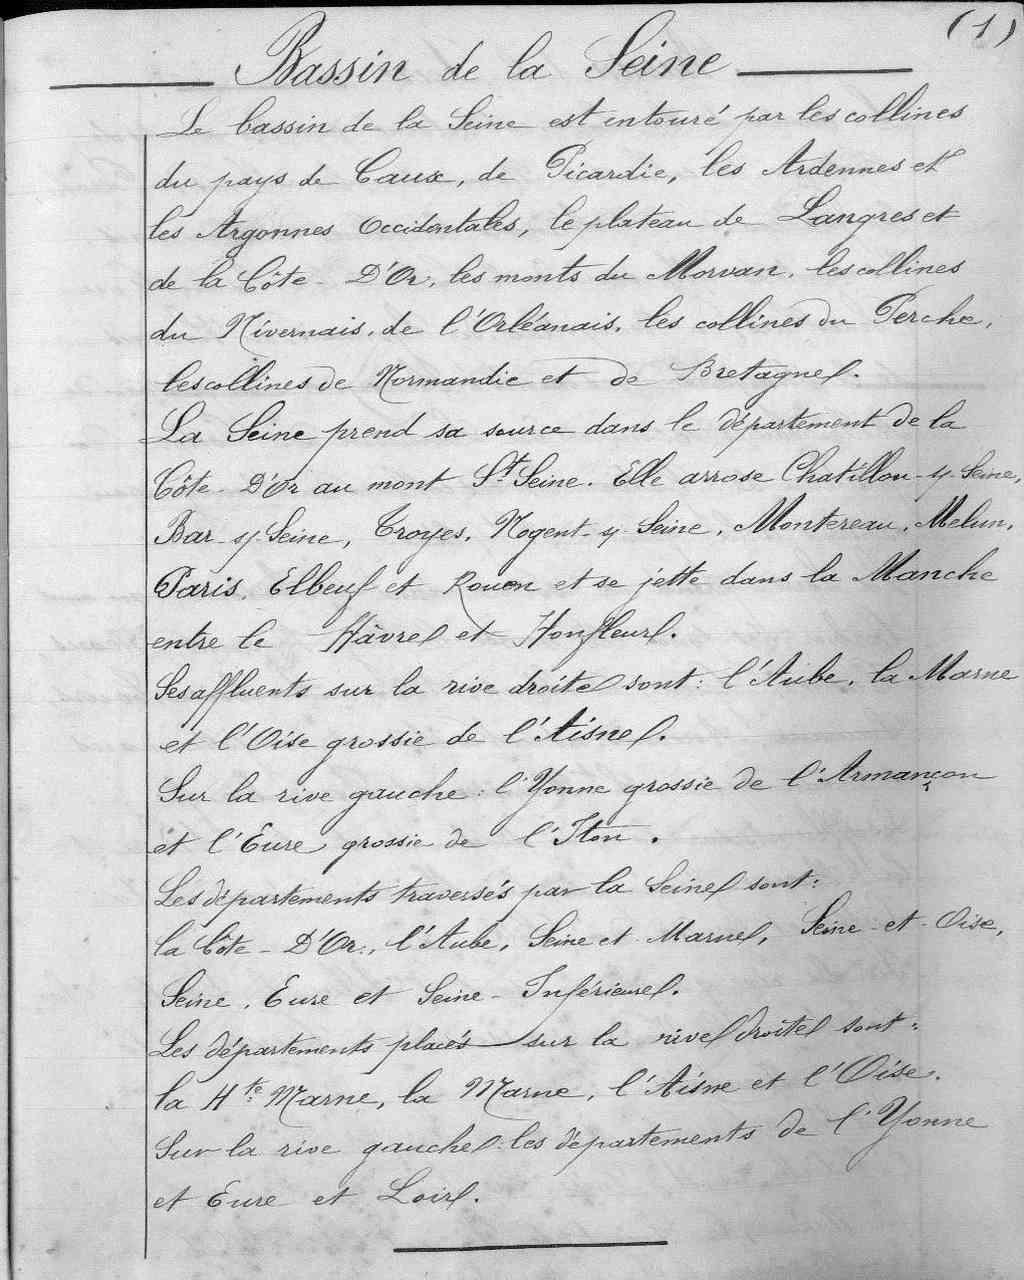 (1)
Bassin de la Seine
Le bassin de la Seine est entouré par les collines
du pays de Caux, de Picardie, les Ardennes et
les Argonnes Occidentales, le plateau de Langres et
de la Côte-D'Or, les monts du Morvan, les collines
du Nivernais, de l'Orléanais, les collines du Perche,
les collines de Normandie et de Bretagne.
La Seine prend sa source dans le département de la
Côte-D'Or au mont St Seine. Elle arrose Chatillon-s/-Seine,
Bar-s/-Seine, Troyes, Nogent-s/-Seine, Montereau, Melun,
Paris, Elbeuf et Rouen et se jette dans la Manche
entre le Hâvre et Honfleur.
Ses affluents sur la rive droite sont: l'Aube, la Marne
et l'Oise grossie de l'Aisne.
Sur la rive gauche: l'Yonne grossie de l'Armançon
et l'Eure grossie de l'Iton.
Les départements traversés par la Seine sont:
la Côte-D'Or, l'Aube, Seine et Marne, Seine-et-Oise,
Seine, Eure et Seine-Inférieure.
Les départements placés sur la rive droite sont:
la Hte Marne, la Marne, l'Aisne et l'Oise.
Sur la rive gauche les départements de l'Yonne
et Eure et Loir.